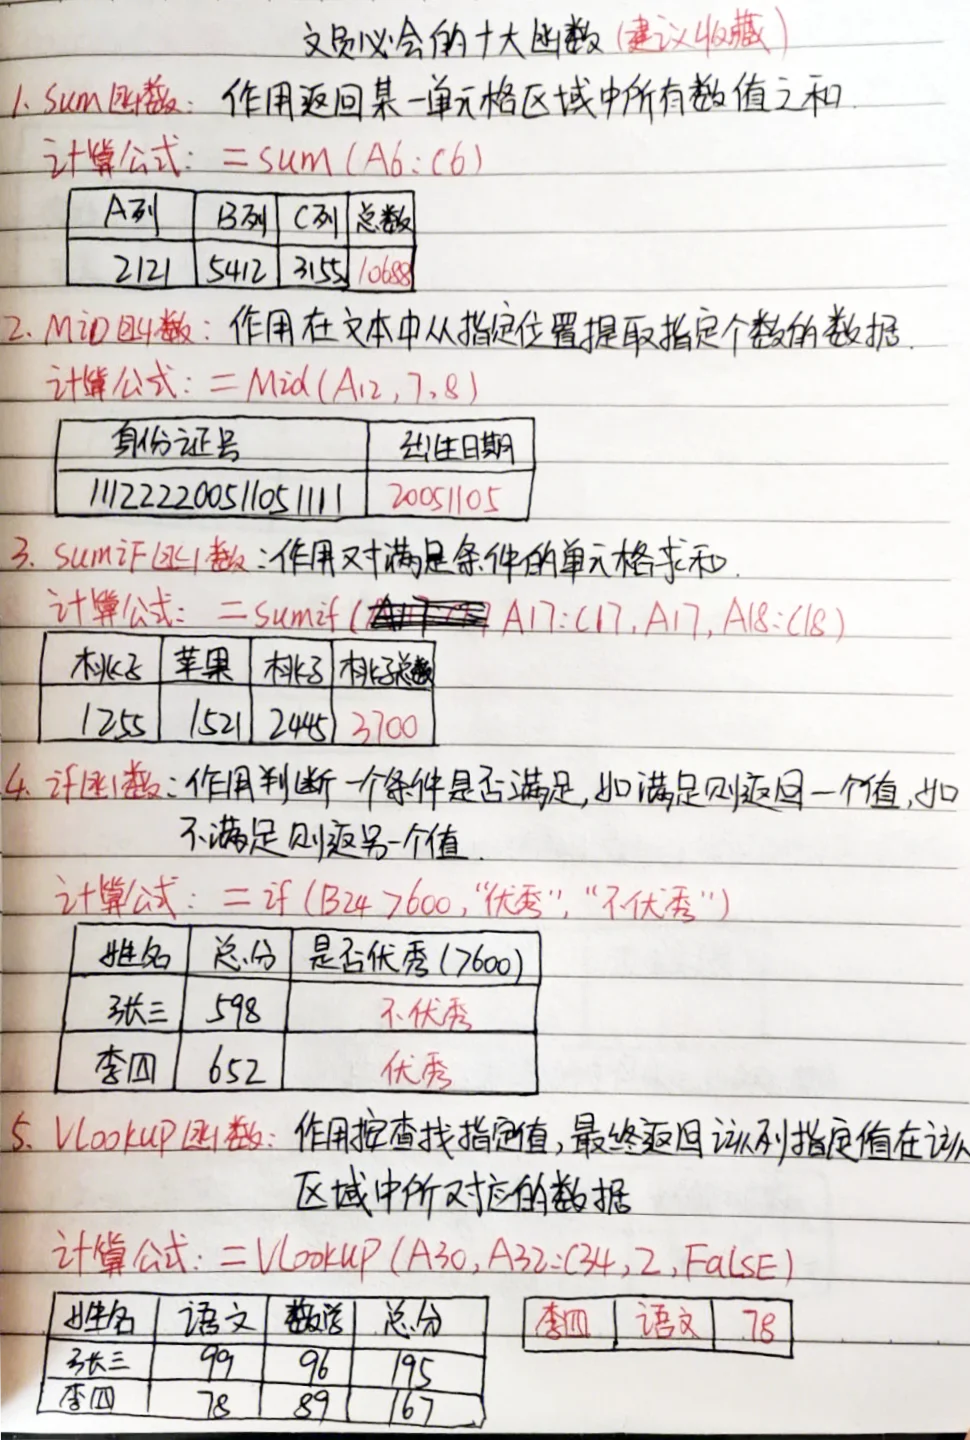 文员必会的十大函数(建议收藏)
1. Sum函数: 作用返回某一单元格区域中所有数值之和.
计算公式: =sum(A6:C6)
A列 B列 C列 总数
2121 5412 3155 10688
2. MiD函数: 作用在文本中从指定位置提取指定个数的数据.
计算公式: =Mid(A12,7,8)
身份证号 出生日期
111222200511051111 20051105
3. sumiF函数:作用对满足条件的单元格求和.
计算公式: =sumif( A17:C17,A17,A18:C18)
桃子 苹果 桃子 桃子总数
1255 1521 2445 3700
4. if函数:作用判断一个条件是否满足,如满足则返回一个值,如
不满足则返另一个值.
计算公式: =if(B24>600,“优秀”,“不优秀”)
姓名 总分 是否优秀(>600)
张三 598 不优秀
李四 652 优秀
5. VLookup函数: 作用按查找指定值,最终返回该列指定值在该
区域中所对应的数据
计算公式: =VLookup(A30,A32:C34,2,FaLSE)
姓名 语文 数学 总分 李四 语文 78
张三 99 96 195
李四 78 89 167